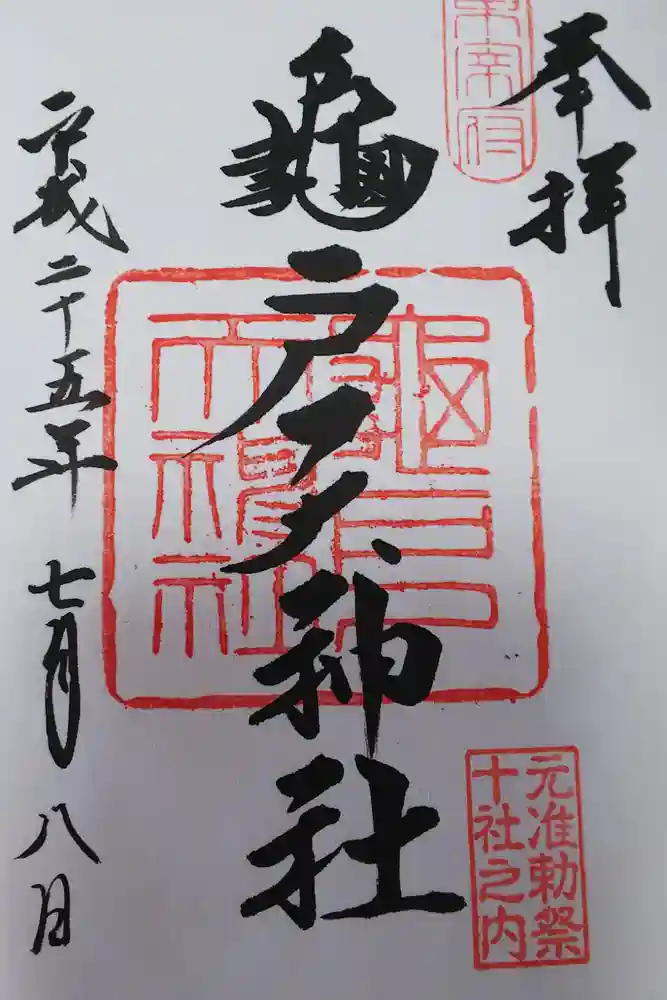 奉拝
龜戸天神社
平成二十五年
七月八日
元准勅祭
十社之内